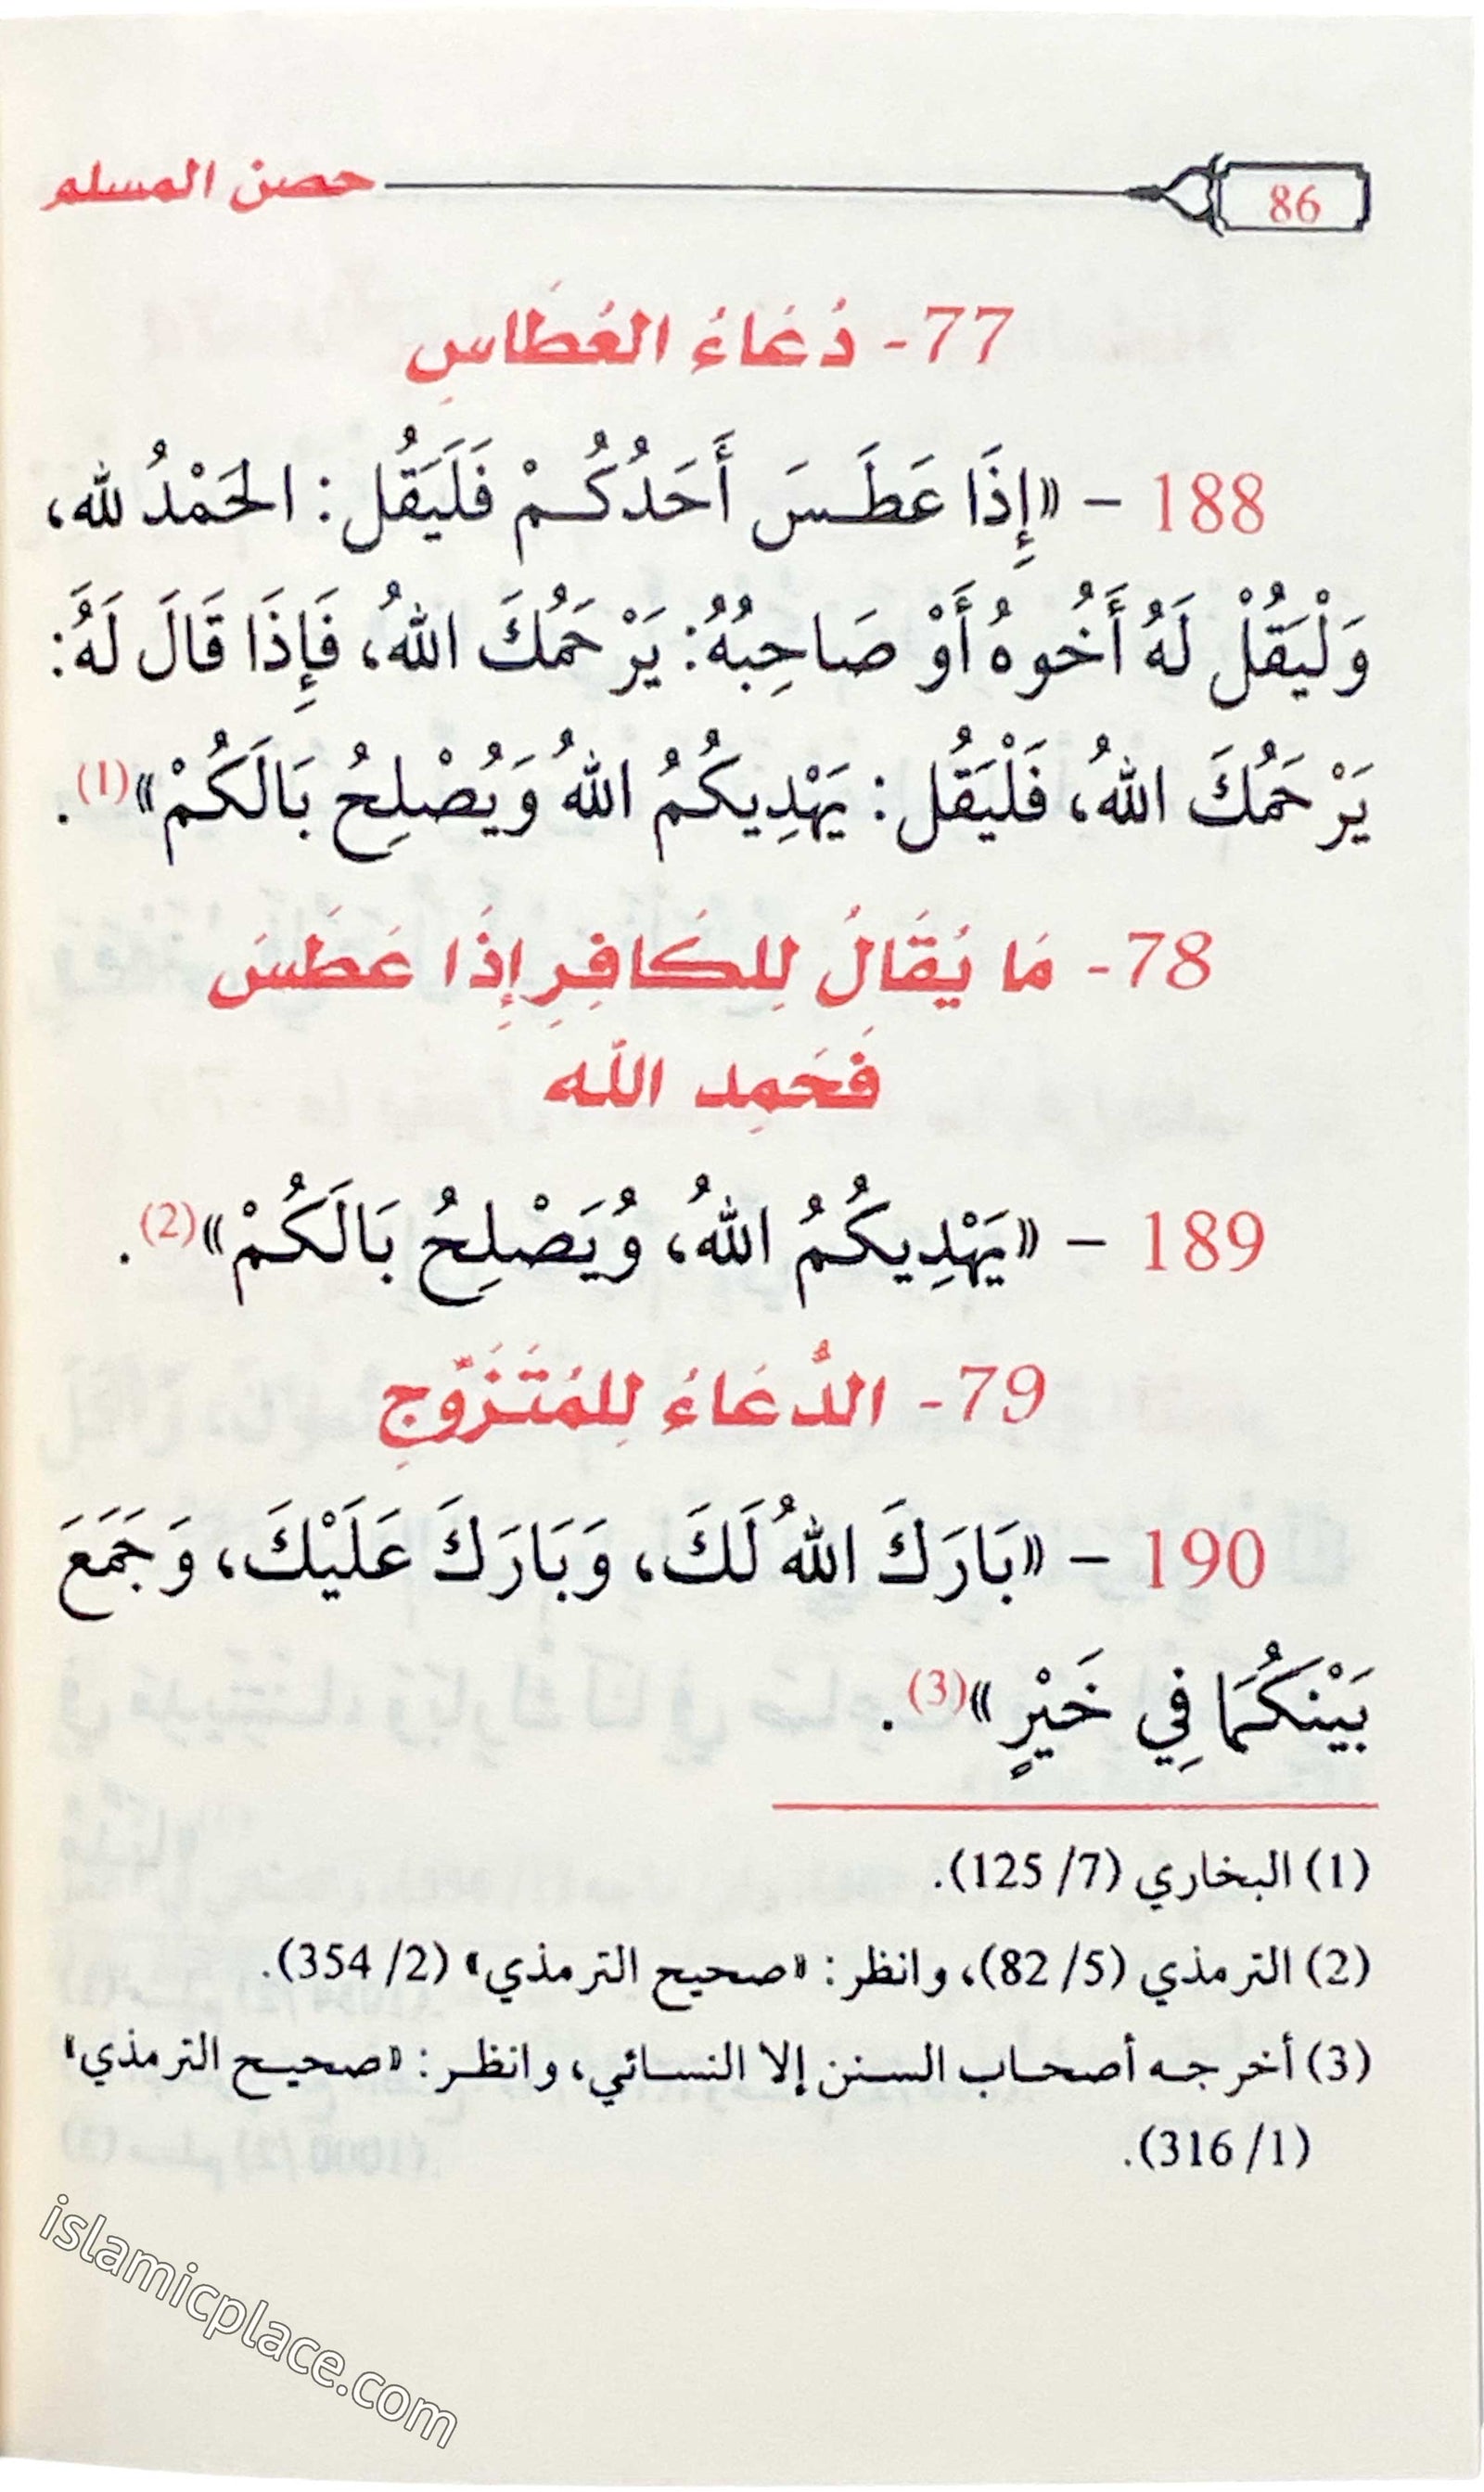 86 حصن المسلم
77- دُعَاءُ العُطَاسِ
188 – «إِذَا عَطَسَ أَحَدُكُمْ فَلَيَقُل: الحَمْدُ لله،
وَلْيَقُلْ لَهُ أَخُوهُ أَوْ صَاحِبُهُ: يَرْحَمُكَ اللهُ، فَإِذَا قَالَ لَهُ:
يَرْحَمُكَ اللهُ، فَلْيَقُل: يَهْدِيكُمُ اللهُ وَيُصْلِحُ بَالَكُمْ»(1).
78- مَا يُقَالُ لِلكَافِرِ إِذَا عَطَسَ
فَحَمِد اللَّه
189 – «يَهْدِيكُمُ اللهُ، وُيَصْلِحُ بَالَكُمْ»(2).
79- الدُّعَاءُ لِلمُتَزَوِّجِ
190 – «بَارَكَ اللهُ لَكَ، وَبَارَكَ عَلَيْكَ، وَجَمَعَ
بَيْنَكُمَا فِي خَيْرٍ»(3).
(1) البخاري (7/ 125).
(2) الترمذي (5/ 82)، وانظر: «صحيح الترمذي» (2/ 354).
(3) أخرجه أصحاب السنن إلا النسائي، وانظر: «صحيح الترمذي»
(1/ 316).
islamicplace.com